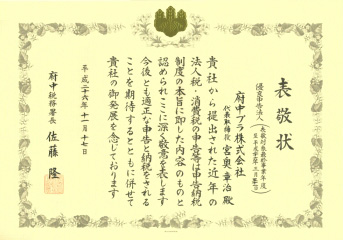 表敬状
優良申告法人
府中プラ株式会社
代表取締役 宮奥章治 殿
貴社から提出された近年の
法人税・消費税の申告等は申告納税
制度の本旨に即した内容のものと
認められここに深く敬意を表します
今後とも適正な申告と納税をされる
ことを期待するとともに併せて
貴社の御発展を念じております
平成二十六年十一月十七日
府中税務署長 佐藤 隆